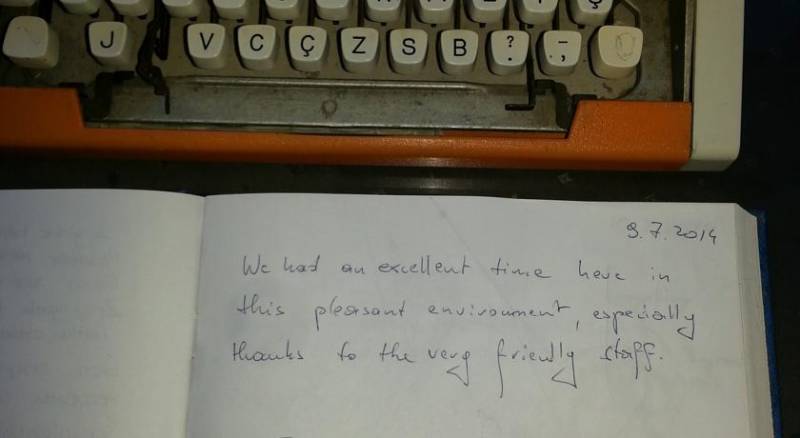 J V C Ç Z S B ? . - ,
9.7.2014
We had an excellent time here in
this pleasant environment, especially
thanks to the very friendly staff.